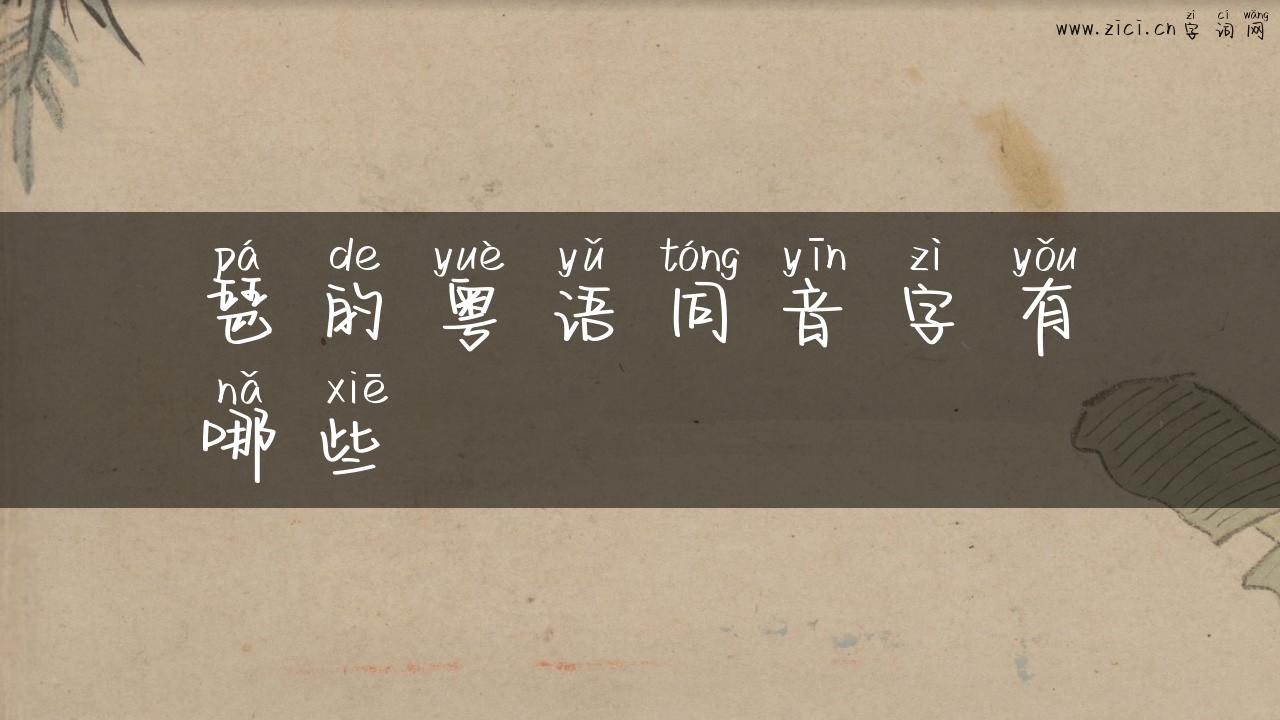 zì cí wǎng
www.zici.cn 字词网
pá de yuè yǔ tóng yīn zì yǒu
琶的粤语同音字有
nǎ xiē
哪些